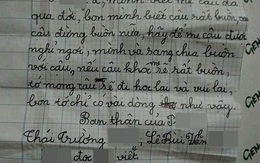 mình biết mẹ cậu đã
qua đời, bọn mình biết cậu rất buồn,
cậu đừng buồn nữa, hãy để mẹ cậu được
nghỉ ngơi, mình và sang chia buồn
với cậu, nếu cậu khóc sẽ rất buồn,
tớ mong cậu sẽ đi học lại và vui lại,
bọn tớ chỉ có vài dòng như vậy.
Bạn thân của
Thái Trương Lê Bùi Vân
đọc viết